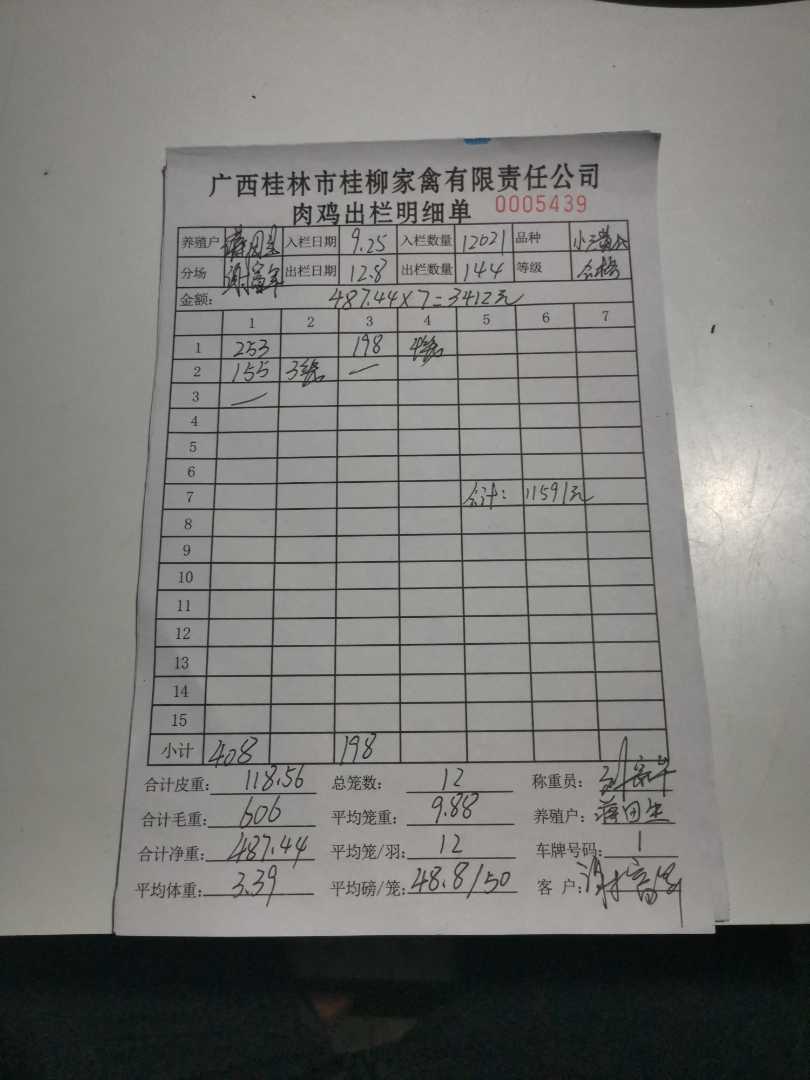 广西桂林市桂柳家禽有限责任公司
肉鸡出栏明细单 0005439
养殖户 入栏日期 9.25 入栏数量 12021 品种
分场 出栏日期 12.8 出栏数量 144 等级 合格
金额: 487.44×7=3412元
1 2 3 4 5 6 7
1 253 198
2 155 —
3 —
4
5
6
7 合计: 11591元
8
9
10
11
12
13
14
15
小计 408 198
合计皮重: 118.56 总笼数: 12 称重员:
合计毛重: 606 平均笼重: 9.88 养殖户:
合计净重: 487.44 平均笼/羽: 12 车牌号码: 1
平均体重: 3.39 平均磅/笼: 48.8/50 客户: